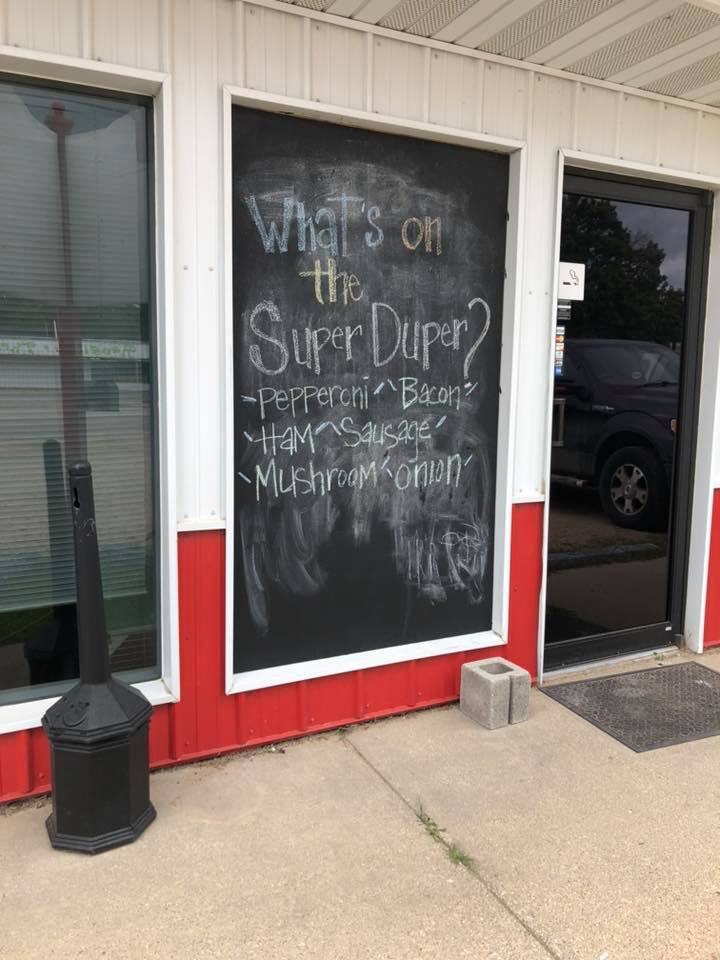 What's on
the
Super Duper?
Pepperoni Bacon
Ham Sausage
Mushroom onion